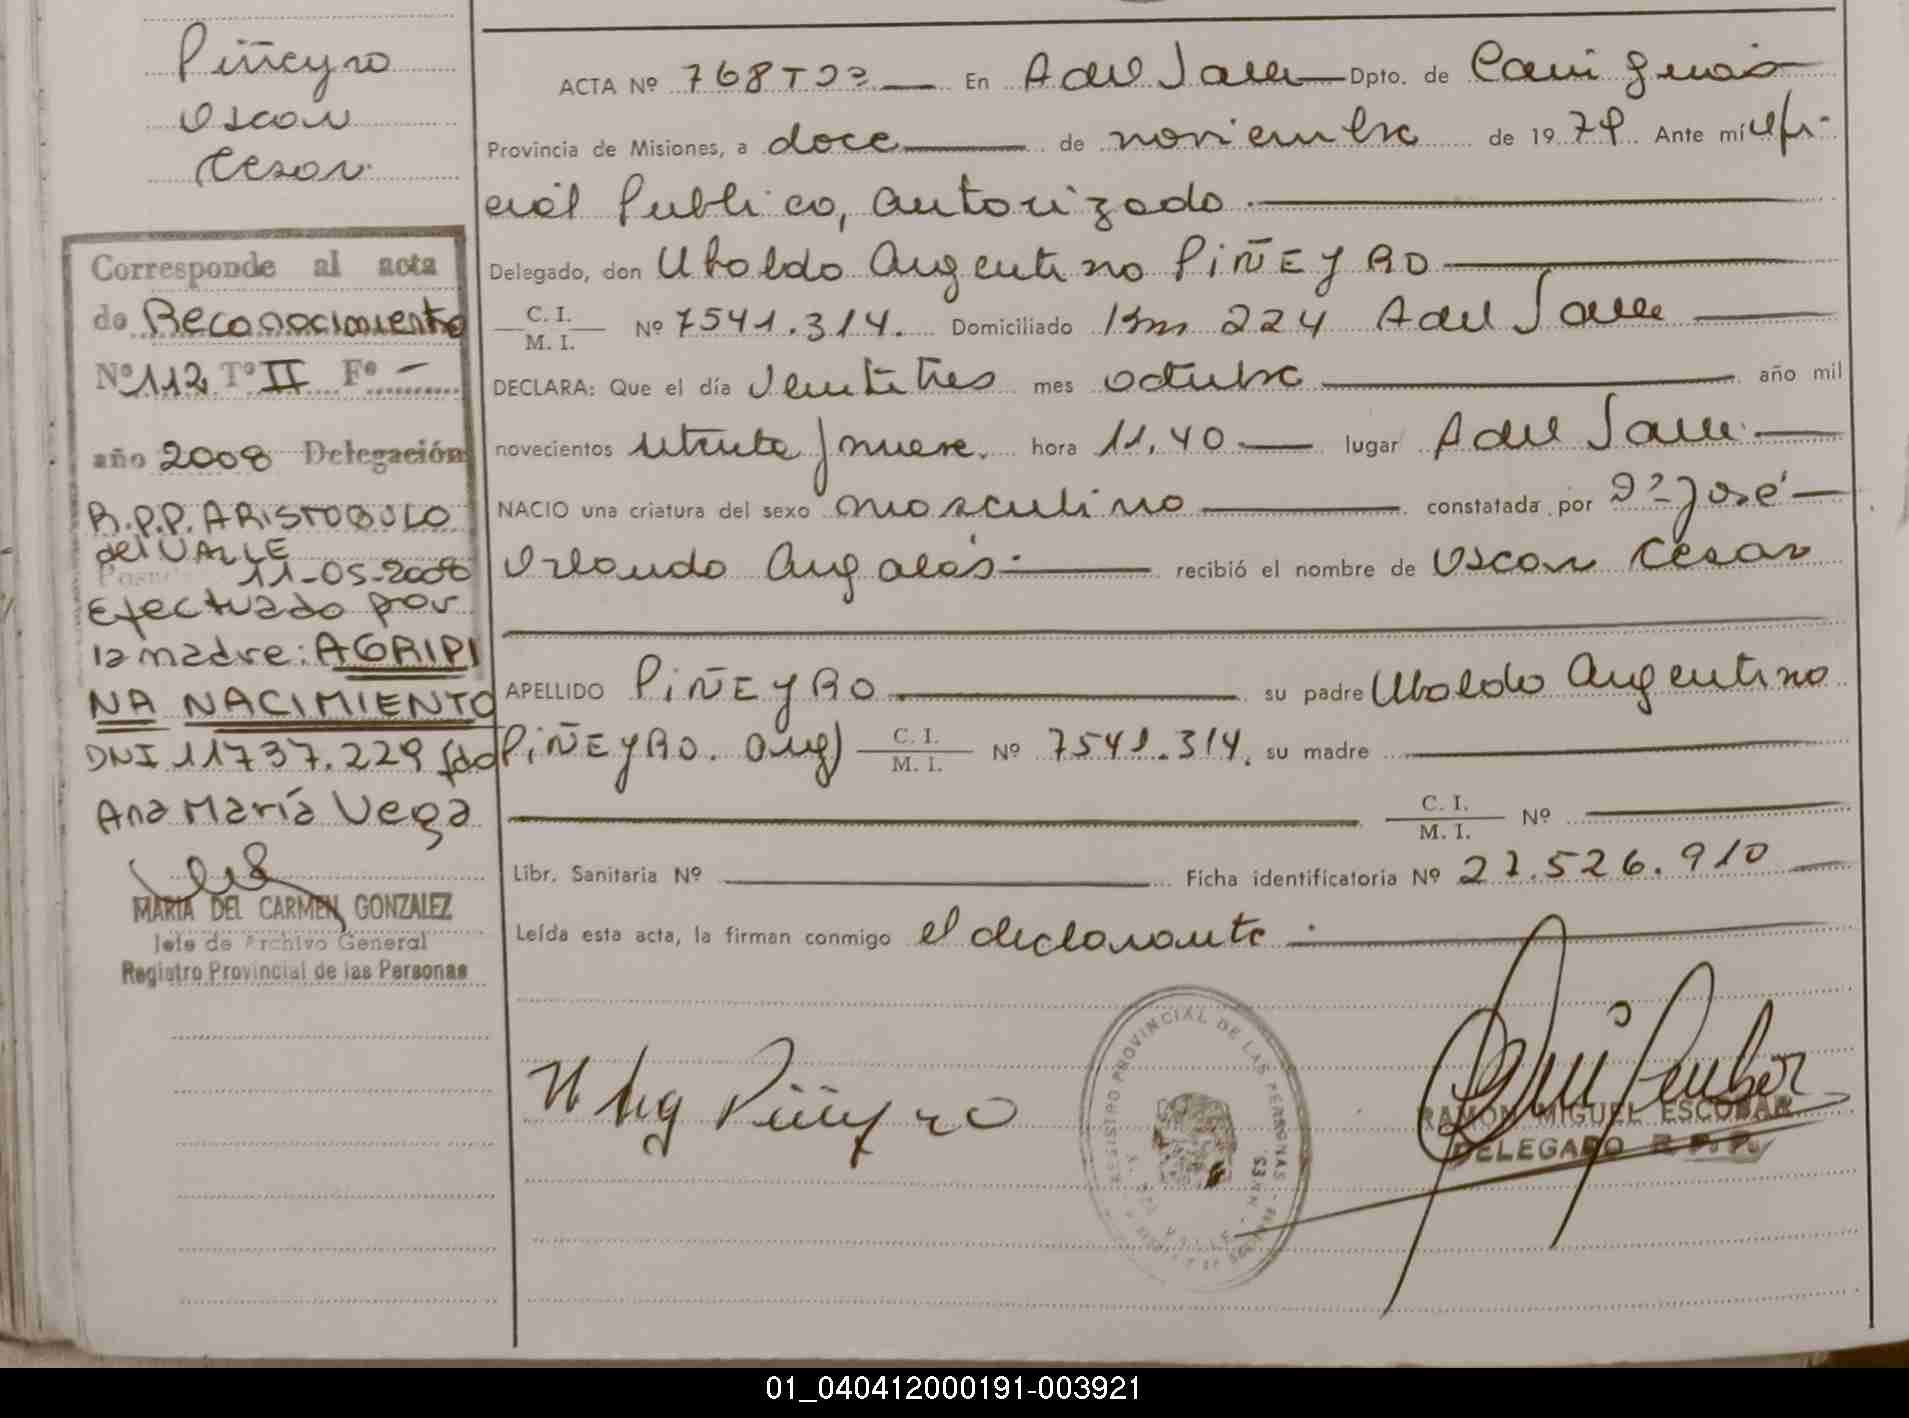 Piñeyro
Oscar
Cesar
Corresponde al acta
de Reconocimiento
Nº 112 Tº II Fº -
año 2008 Delegación
R.P.P. ARISTOBULO
del VALLE
11-05-2008
Efectuado por
la madre: AGRIPI
NA NACIMIENTO
DNI 11737.229 fdo
Ana María Vega
MARIA DEL CARMEN GONZALEZ
Jefe de Archivo General
Registro Provincial de las Personas
ACTA Nº 768 T En A del Valle Dpto. de Cainguás
Provincia de Misiones, a doce de noviembre de 1979 Ante mí Ofi-
cial Publico, autorizado
Delegado, don Ubaldo Argentino PIÑEYRO
C. I.
M. I. Nº 7541.314. Domiciliado Km 224 A del Valle
DECLARA: Que el día Veintitres mes octubre año mil
novecientos setenta y nueve. hora 11.40 lugar A del Valle
NACIO una criatura del sexo masculino constatada por Dº José
Orlando recibió el nombre de Oscar Cesar
APELLIDO PIÑEYRO su padre Ubaldo Argentino
PIÑEYRO. Arg) C. I.
M. I. Nº 7541.314. su madre
C. I.
M. I. Nº
Libr. Sanitaria Nº Ficha identificatoria Nº 27.526.910
Leída esta acta, la firman conmigo el declarante
Piñeyro
REGISTRO PROVINCIAL DE LAS PERSONAS
RAMON MIGUEL ESCOBAR
DELEGADO R. P. P.
01_040412000191-003921